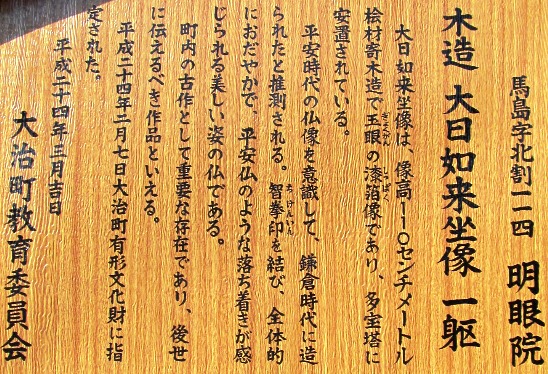 馬島字北割一一四 明眼院
木造 大日如来坐像 一躯
大日如来坐像は、像高一一〇センチメートル
桧材寄木造で玉眼の漆箔像であり、多宝塔に
ぎょくがん しっぱく
安置されている。
平安時代の仏像を意識して、鎌倉時代に造
られたと推測される。智拳印を結び、全体的
ちけんいん
におだやかで、平安仏のような落ち着きが感
じられる美しい姿の仏である。
町内の古作として重要な存在であり、後世
に伝えるべき作品といえる。
平成二十四年二月七日大治町有形文化財に指
定された。
平成二十四年三月吉日
大治町教育委員会